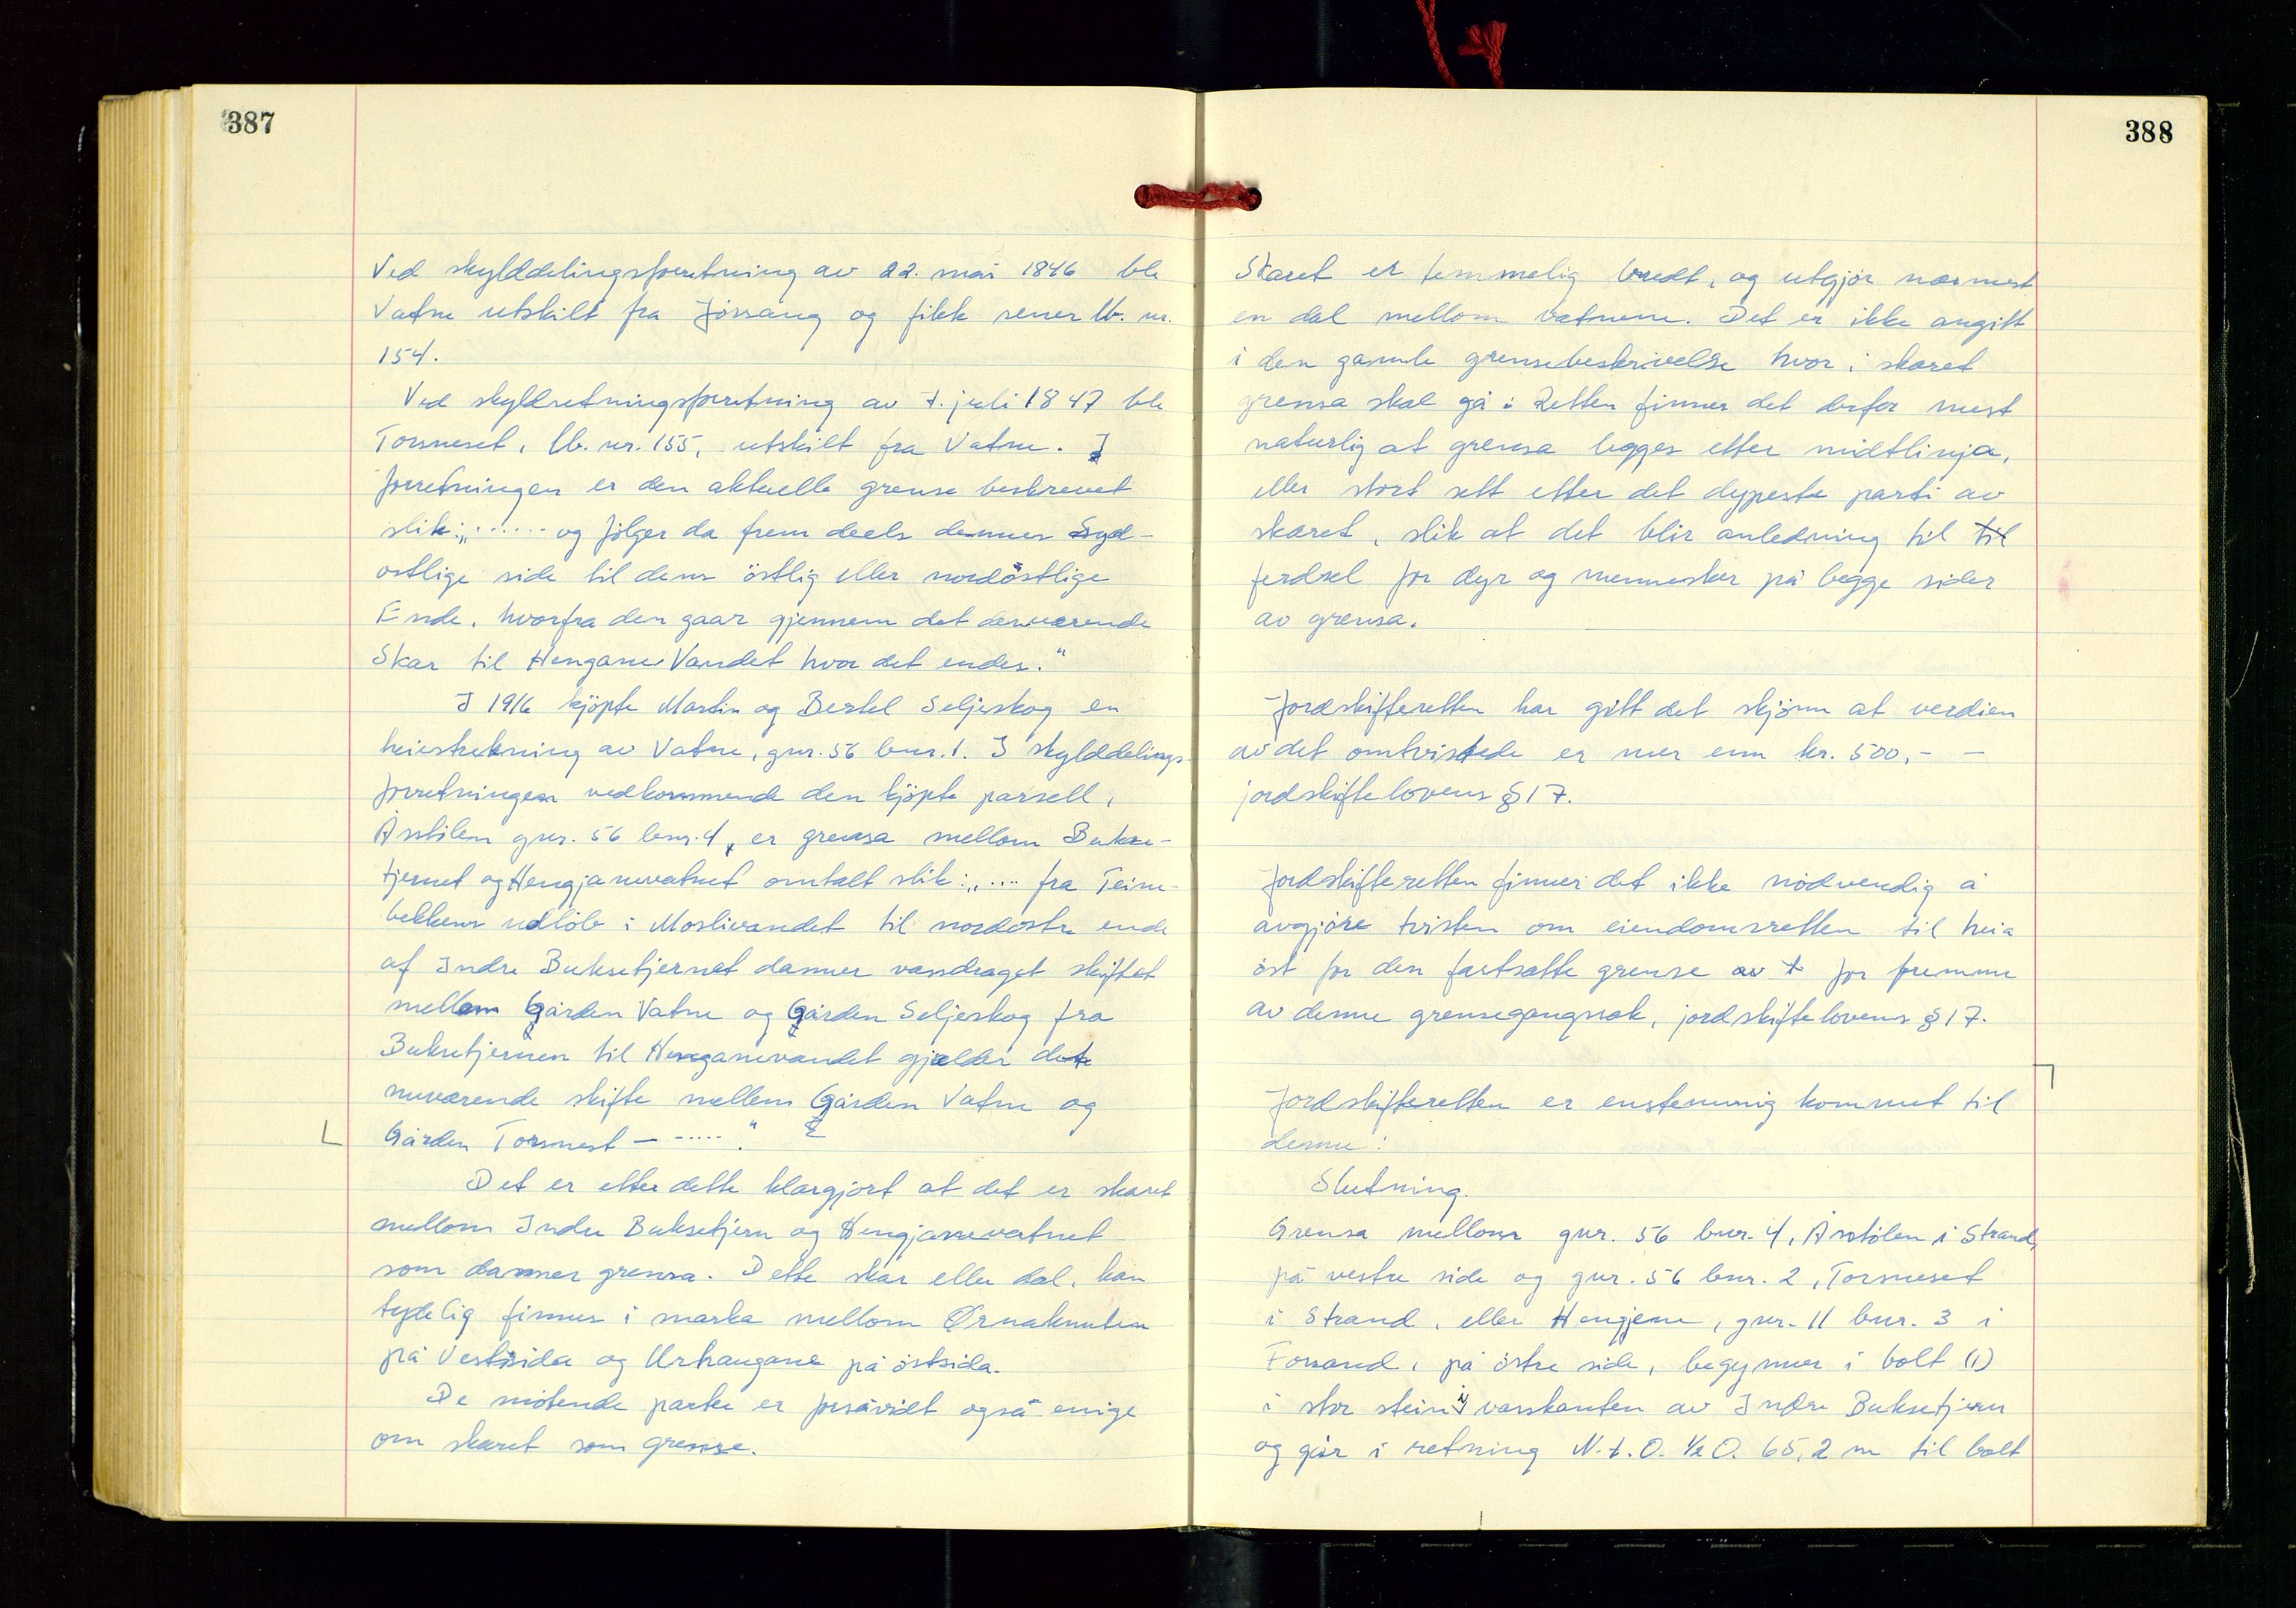 387
Ved skylddelingsforretning av 22. mai 1846 ble
Vatne utskilt fra Jössang og fikk sener lb. nr.
154.
Ved skyldsetningsforretning av 7. juli 1847 ble
Torsneset, lb. nr. 155, utskilt fra Vatne. I
forretningen er den aktuelle grense beskrevet
slik: „...... og fölger da frem deels dennes Syd-
ostlige side til dens östlig eller nordöstlige
Ende, hvorfra den gaar gjennem det derværende
Skar til Hengane Vandet hvor det endes."
I 1916 kjöpte Martin og Bertel Seljeskog en
heiestrekning av Vatne, gnr. 56 bnr. 1. I skylddelings-
forretningen vedkommende den kjöpte parsell,
Åsstölen gnr. 56 bnr. 4, er grensa mellom Bukse-
tjernet og Hengjanevatnet omtalt slik: „.... fra Teine-
bekkens udlöb i Moslivandet til nordöstre ende
af Indre Buksetjernet danner vassdraget skiftet
mellem Gården Vatne og Gården Seljeskog fra
Buksetjernen til Henganevandet gjælder dete
nuværende skifte mellem Gården Vatne og
Gården Torsnest - ....."
Det er etter dette klargjort at det er skaret
mellom Indre Buksetjern og Hengjanevatnet
som danner grensa. Dette skar eller dal, kan
tydelig finnes i marka mellom Ørnaknuten
på Vestsida og Urhaugane på östsida.
De mötende parter er forsåvidt også enige
om skaret som grense.
388
Skaret er temmelig bredt, og utgjör nærmest
en dal mellom vatnene. Det er ikke angitt
i den gamle grensebeskrivelse hvor i skaret
grensa skal gå. Retten finner det derfor mest
naturlig at grensa legges etter midtlinja,
eller stort sett etter det dypeste parti av
skaret, slik at det blir anledning til til
ferdsel for dyr og mennesker på begge sider
av grensa.
Jordskifteretten har gitt det skjönn at verdien
av det omtvistede er mer enn kr. 500,- -
jordskiftelovens § 17.
Jordskifteretten finner det ikke nödvendig å
avgjöre tvisten om eiendomsretten til heia
öst for den fastsatte grense av t for fremme
av denne grensegangssak, jordskiftelovens § 17.
Jordskifteretten er enstemmig kommet til
denne:
Slutning.
Grensa mellom gnr. 56 bnr. 4, Åsstölen i Strand,
på vestre side og gnr. 56 bnr. 2, Torsneset
i Strand, eller Hengjene, gnr. 11 bnr. 3 i
Forsand, på östre side, begynner i bolt (1)
i stor stein i vasskanten av Indre Buksetjern
og går i retning N.t.O. ½ O. 65,2 m til bolt